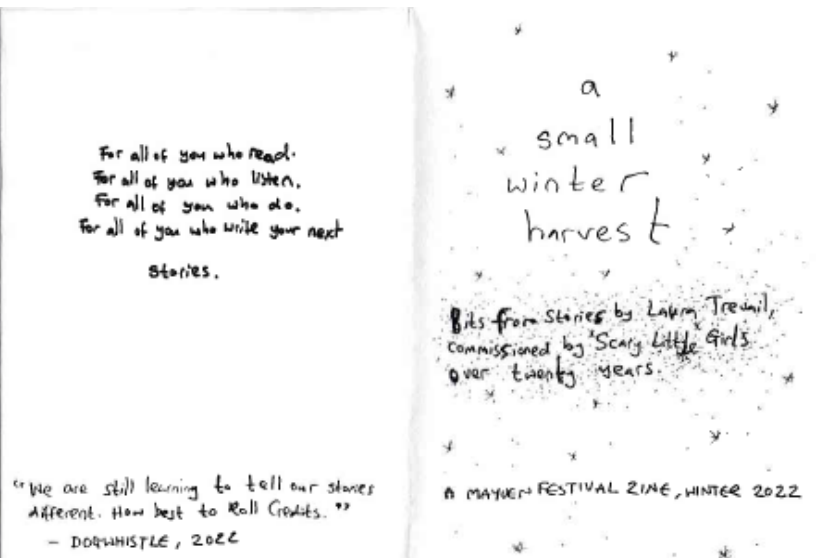 For all of you who read.
For all of you who listen.
For all of you who do.
For all of you who write your next
stories.
"We are still learning to tell our stories
different. How best to Roll Credits."
– DOGWHISTLE, 2022
a
small
winter
harvest
Bits from stories by Laura Trevail,
commissioned by 'Scary Little Girls'
over twenty years.
A MAYVEN FESTIVAL ZINE, WINTER 2022